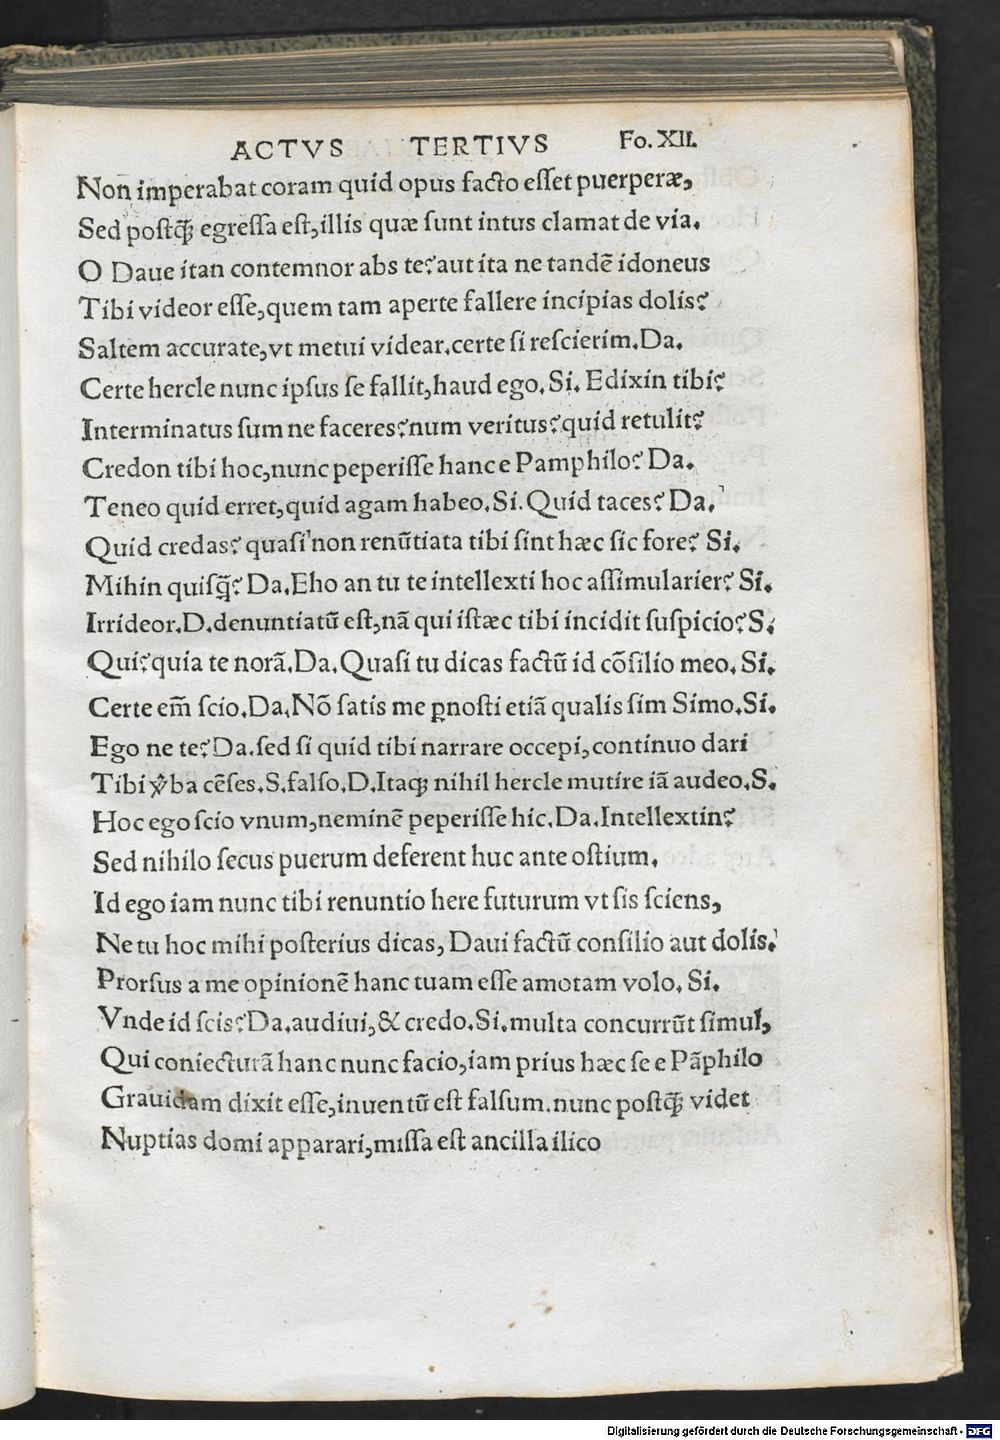 ACTVS TERTIVS Fo. XII.
Non imperabat coram quid opus facto esset puerperæ,
Sed postq̃ egressa est, illis quæ sunt intus clamat de via.
O Daue itan contemnor abs te? aut ita ne tandē idoneus
Tibi videor esse, quem tam aperte fallere incipias dolis?
Saltem accurate, vt metui videar. certe si rescierim. Da.
Certe hercle nunc ipsus se fallit, haud ego. Si. Edixin tibi?
Interminatus sum ne faceres? num veritus? quid retulit?
Credon tibi hoc, nunc peperisse hanc e Pamphilo? Da.
Teneo quid erret, quid agam habeo. Si. Quid taces? Da.
Quid credas? quasi non renūtiata tibi sint hæc sic fore? Si.
Mihin quisq̃? Da. Eho an tu te intellexti hoc assimularier? Si.
Irrideor. D. denuntiatū est, nā qui istæc tibi incidit suspicio? S.
Qui? quia te norā. Da. Quasi tu dicas factū id cōsilio meo. Si.
Certe em̄ scio. Da. Nō satis me ꝑnosti etiā qualis sim Simo. Si.
Ego ne te? Da. sed si quid tibi narrare occepi, continuo dari
Tibi ꝟba cēses. S. falso. D. Itaqꝫ nihil hercle mutire iā audeo. S.
Hoc ego scio vnum, neminē peperisse hic. Da. Intellextin?
Sed nihilo secus puerum deferent huc ante ostium.
Id ego iam nunc tibi renuntio here futurum vt sis sciens,
Ne tu hoc mihi posterius dicas, Daui factū consilio aut dolis.
Prorsus a me opinionē hanc tuam esse amotam volo. Si.
Vnde id scis? Da. audiui, & credo. Si. multa concurrūt simul,
Qui coniecturā hanc nunc facio, iam prius hæc se e Pāphilo
Grauidam dixit esse, inuentū est falsum. nunc postq̃ videt
Nuptias domi apparari, missa est ancilla ilico
Digitalisierung gefördert durch die Deutsche Forschungsgemeinschaft - DFG